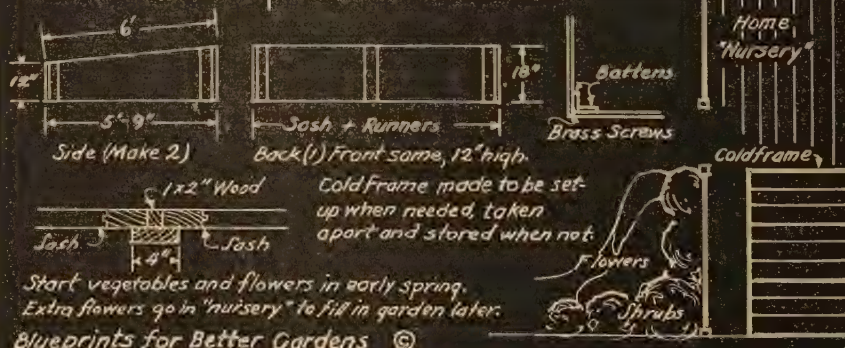 6'
12"
5'-9"
Side (Make 2)
Sash + Runners
18"
Back (1) Front same, 12" high.
Battens
Brass Screws
Home
"Nursery"
Coldframe
1x2" Wood
Sash
Sash
4"
Cold Frame made to be set-
up when needed, taken
apart and stored when not.
Flowers
Shrubs
Start vegetables and flowers in early spring.
Extra flowers go in "nursery" to fill in garden later.
Blueprints for Better Gardens ©